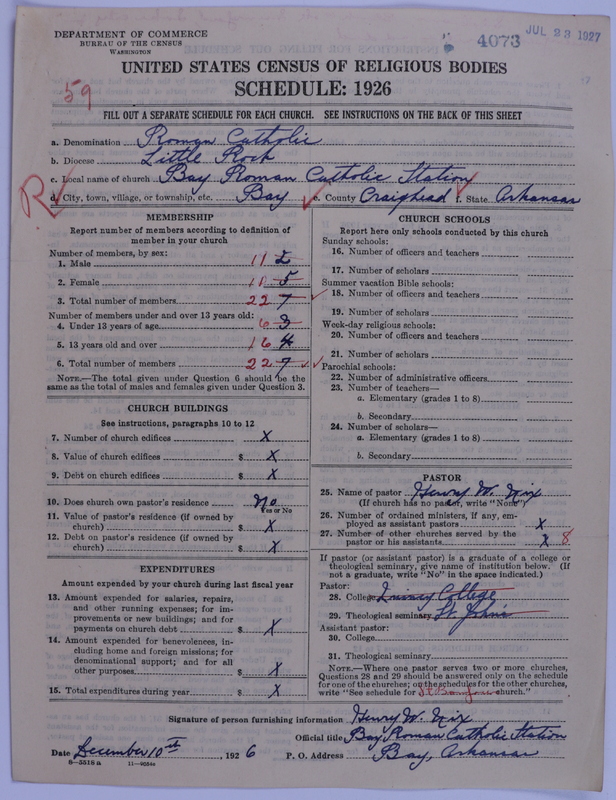 DEPARTMENT OF COMMERCE
BUREAU OF THE CENSUS
WASHINGTON
4073
JUL 23 1927
UNITED STATES CENSUS OF RELIGIOUS BODIES
SCHEDULE: 1926
59
FILL OUT A SEPARATE SCHEDULE FOR EACH CHURCH. SEE INSTRUCTIONS ON THE BACK OF THIS SHEET
a. Denomination Roman Catholic
b. Diocese Little Rock
c. Local name of church Bay Roman Catholic Station
R
d. City, town, village, or township, etc. Bay e. County Craighead f. State Arkansas
MEMBERSHIP
Report number of members according to definition of
member in your church
Number of members, by sex:
1. Male 11 2
2. Female 11 5
3. Total number of members 22 7
Number of members under and over 13 years old:
4. Under 13 years of age 6 3
5. 13 years old and over 16 4
6. Total number of members 22 7
NOTE.—The total given under Question 6 should be the
same as the total of males and females given under Question 3.
CHURCH BUILDINGS
See instructions, paragraphs 10 to 12
7. Number of church edifices X
8. Value of church edifices $ X
9. Debt on church edifices $ X
10. Does church own pastor's residence No
Yes or No
11. Value of pastor's residence (if owned by
church) $ X
12. Debt on pastor's residence (if owned by
church) $ X
EXPENDITURES
Amount expended by your church during last fiscal year
13. Amount expended for salaries, repairs,
and other running expenses; for im-
provements or new buildings; and for
payments on church debt $ X
14. Amount expended for benevolences, in-
cluding home and foreign missions; for
denominational support; and for all
other purposes $ X
15. Total expenditures during year $ X
CHURCH SCHOOLS
Report here only schools conducted by this church
Sunday schools:
16. Number of officers and teachers
17. Number of scholars
Summer vacation Bible schools:
18. Number of officers and teachers
19. Number of scholars
Week-day religious schools:
20. Number of officers and teachers
21. Number of scholars
Parochial schools:
22. Number of administrative officers
23. Number of teachers—
a. Elementary (grades 1 to 8)
b. Secondary
24. Number of scholars—
a. Elementary (grades 1 to 8)
b. Secondary
PASTOR
25. Name of pastor Henry W. Nix
(If church has no pastor, write "None")
26. Number of ordained ministers, if any, em-
ployed as assistant pastors X
27. Number of other churches served by the
pastor or his assistants X 8
If pastor (or assistant pastor) is a graduate of a college or
theological seminary, give name of institution below. (If
not a graduate, write "No" in the space indicated.)
Pastor:
28. College Quincy College
29. Theological seminary St. John's
Assistant pastor:
30. College
31. Theological seminary
NOTE.—Where one pastor serves two or more churches,
Questions 28 and 29 should be answered only on the schedule
for one of the churches; on the schedules for the other churches,
write "See schedule for church."
Signature of person furnishing information Henry W. Nix
Official title Bay Roman Catholic Station
Date December 10th, 1926 P. O. Address Bay, Arkansas
8—5518 a